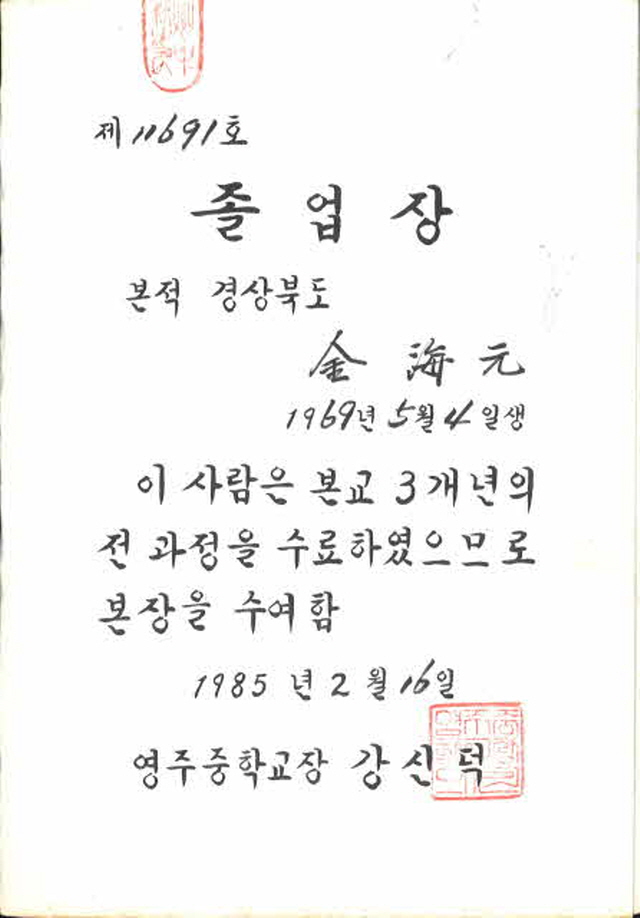 제 11691호
졸업장
본적 경상북도
金海元
1969년 5월 4일생
이 사람은 본교 3개년의
전 과정을 수료하였으므로
본장을 수여함
1985년 2월 16일
영주중학교장 강신덕